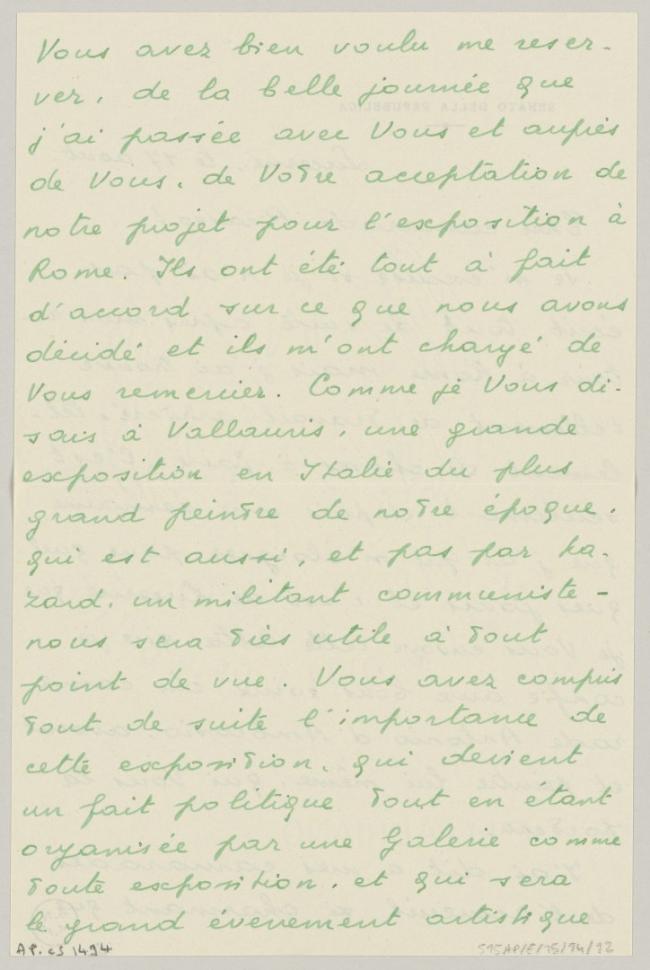 Vous avez bien voulu me reser-
ver, de la belle journée que
j'ai passée avec Vous et auprès
de Vous, de Votre acceptation de
notre projet pour l'exposition à
Rome. Ils ont été tout à fait
d'accord sur ce que nous avons
décidé et ils m'ont chargé de
Vous remercier. Comme je Vous di-
sais à Vallauris, une grande
exposition en Italie du plus
grand peintre de notre époque,
qui est aussi, et pas par ha-
zard, un militant communiste -
nous sera très utile à tout
point de vue. Vous avez compris
tout de suite l'importance de
cette exposition, qui devient
un fait politique tout en étant
organisée par une Galerie comme
toute exposition, et qui sera
le grand évenement artistique
AP. cs 1494
515AP/E/15/94/22